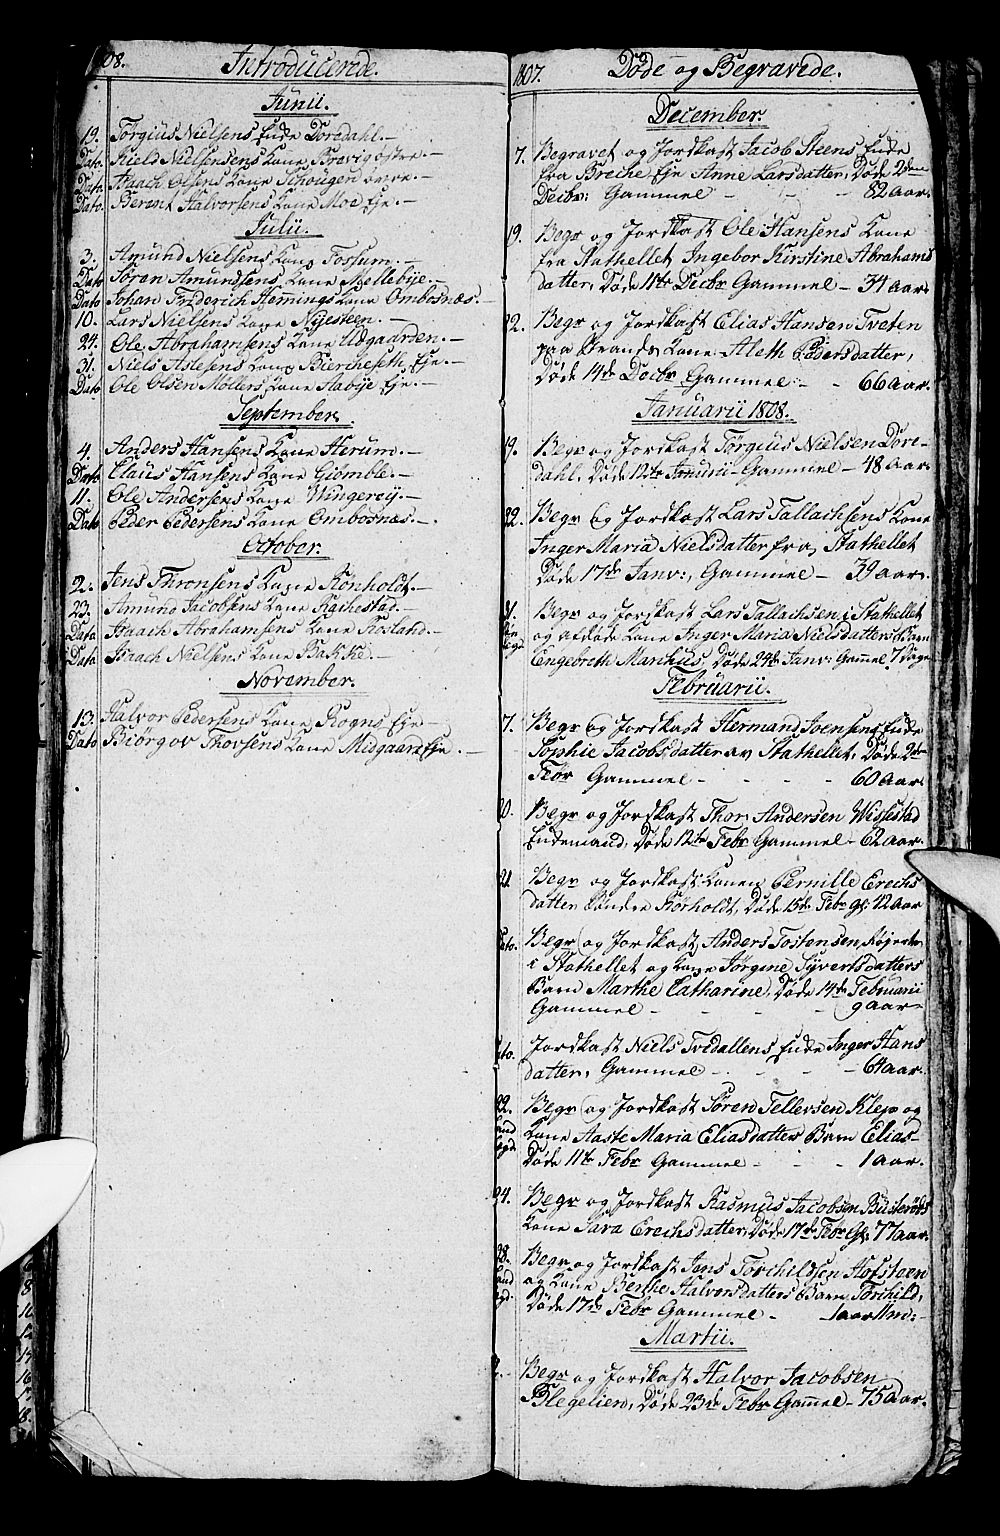 08. Introducerede.
Junii.
19. Jørgius Nielsens Enke Doredahl.
Dato. Niels Nielsens Kone Brevigøstre.
Dato Isaach Olsens Kone Schougen
Dato. Berent Halvorsens Kone Moe Eje.
Julii.
3. Amund Nielsens Kone Fossum.
Dato Søren Amundsens Kone Hellebye.
Dato Johan Friderich Hemings Kone Ombosnæs.
10. Lars Nielsens Kone Nyesteen.
24. Ole Abrahamsens Kone Udgaarden.
31. Niels Aslesens Kone Biercheseth Eje.
Dato Ole Olsen Møllers Kone Aabye Eje.
September.
4. Anders Hansens Kone Herum.
Dato Claus Hansens Kone Giømble.
11. Ole Andersens Kone Wingereij.
Dato Peder Pedersens Kone Ombosnæs.
October.
2. Jens Thronsens Kone Rønholdt.
23. Amund Jacobsens Kone Rachestad.
Dato Isaach Abrahamsens Kone Rosland.
Dato Isaach Nielsens Kone Bakke.
November.
13. Halvor Pedersens Kone Rogns Eje
Dato Biørgov Thovsens Kone Midgaard Eje.
1807. Døde og Begravede.
December.
7. Begravet og Jordkast Jacob Steens Enke
fra Breche Eje Anne Larsdatter, Døde 2den
Decbr: Gammel 82 Aar.
19. Begr og Jordkast Ole Hansens Kone
fra Stathellet Ingebor Kirstine Abrahams
datter, Døde 11te Decbr Gammel 34 Aar.
22. Begr og Jordkast Elias Hansen Tveten
paa Strands Kone Aleth Pedersdatter,
Døde 14de Decbr Gammel 66 Aar.
Januarii 1808.
19. Begr og Jordkast Jørgius Nielsen Dore-
dahl, Døde 12te Januarii Gammel 48 Aar.
22. Begr og Jordkast Lars Tallachsens Kone
Inger Maria Nielsdatter fra, Stathellet
Døde 17de Janv:, Gammel 39 Aar.
31. Begr og Jordkast Lars Tallachsen i Stathellet
og afdøde Kone Inger Maria Nielsdatters Barn
Engebreth Marchus, Døde 24de Janv: Gammel 7 Dage
Februarii.
7. Begr og Jordkast Hermand Ivensens Enke
Sophie Jacobsdatter av Stathellet, Døde 2den
Febr Gammel 60 Aar
20. Begr og Jordkast Thor Andersen Wissestad
Enkemand, Døde 12te Febr Gammel 62 Aar.
21 Begr og Jordkast Konen Pernille Erichs
datter Søndre Rørholdt, Døde 15de Febr Gl: 82 Aar
Dato. Begr og Jordkast Anders Tostensen,
i Stathellet og Kone Jørgine Syvertsdatters
Barn Marthe Catharine, Døde 14de Februarii
Gammel 9 Aar
Dato. Jordkast Niels Tvedallens Enke Inger Hans
datter, Gammel 64 Aar.
22. Begr og Jordkast Søren Tellevsen Klep og
Kone Aaste Maria Eliasdatters Barn Elias
Døde 11te Febr Gammel 1 Aar.
24. Begr og Jordkast Rasmus Jacobsen Busterøds
Kone Sara Erechsdatter, Døde 17de Febr Gl: 77 Aar.
28. Begr og Jordkast Jens Torchildsen Hofsteen
og Kone Berthe Halvorsdatters Barn Torchild,
Døde 17de Febr Gammel 1 Aar 11 Md:
Martii.
Begr og Jordkast Halvor Jacobsen
Blegelien, Døde 23de Febr Gammel 75 Aar.
8
10
12
14
16
18.